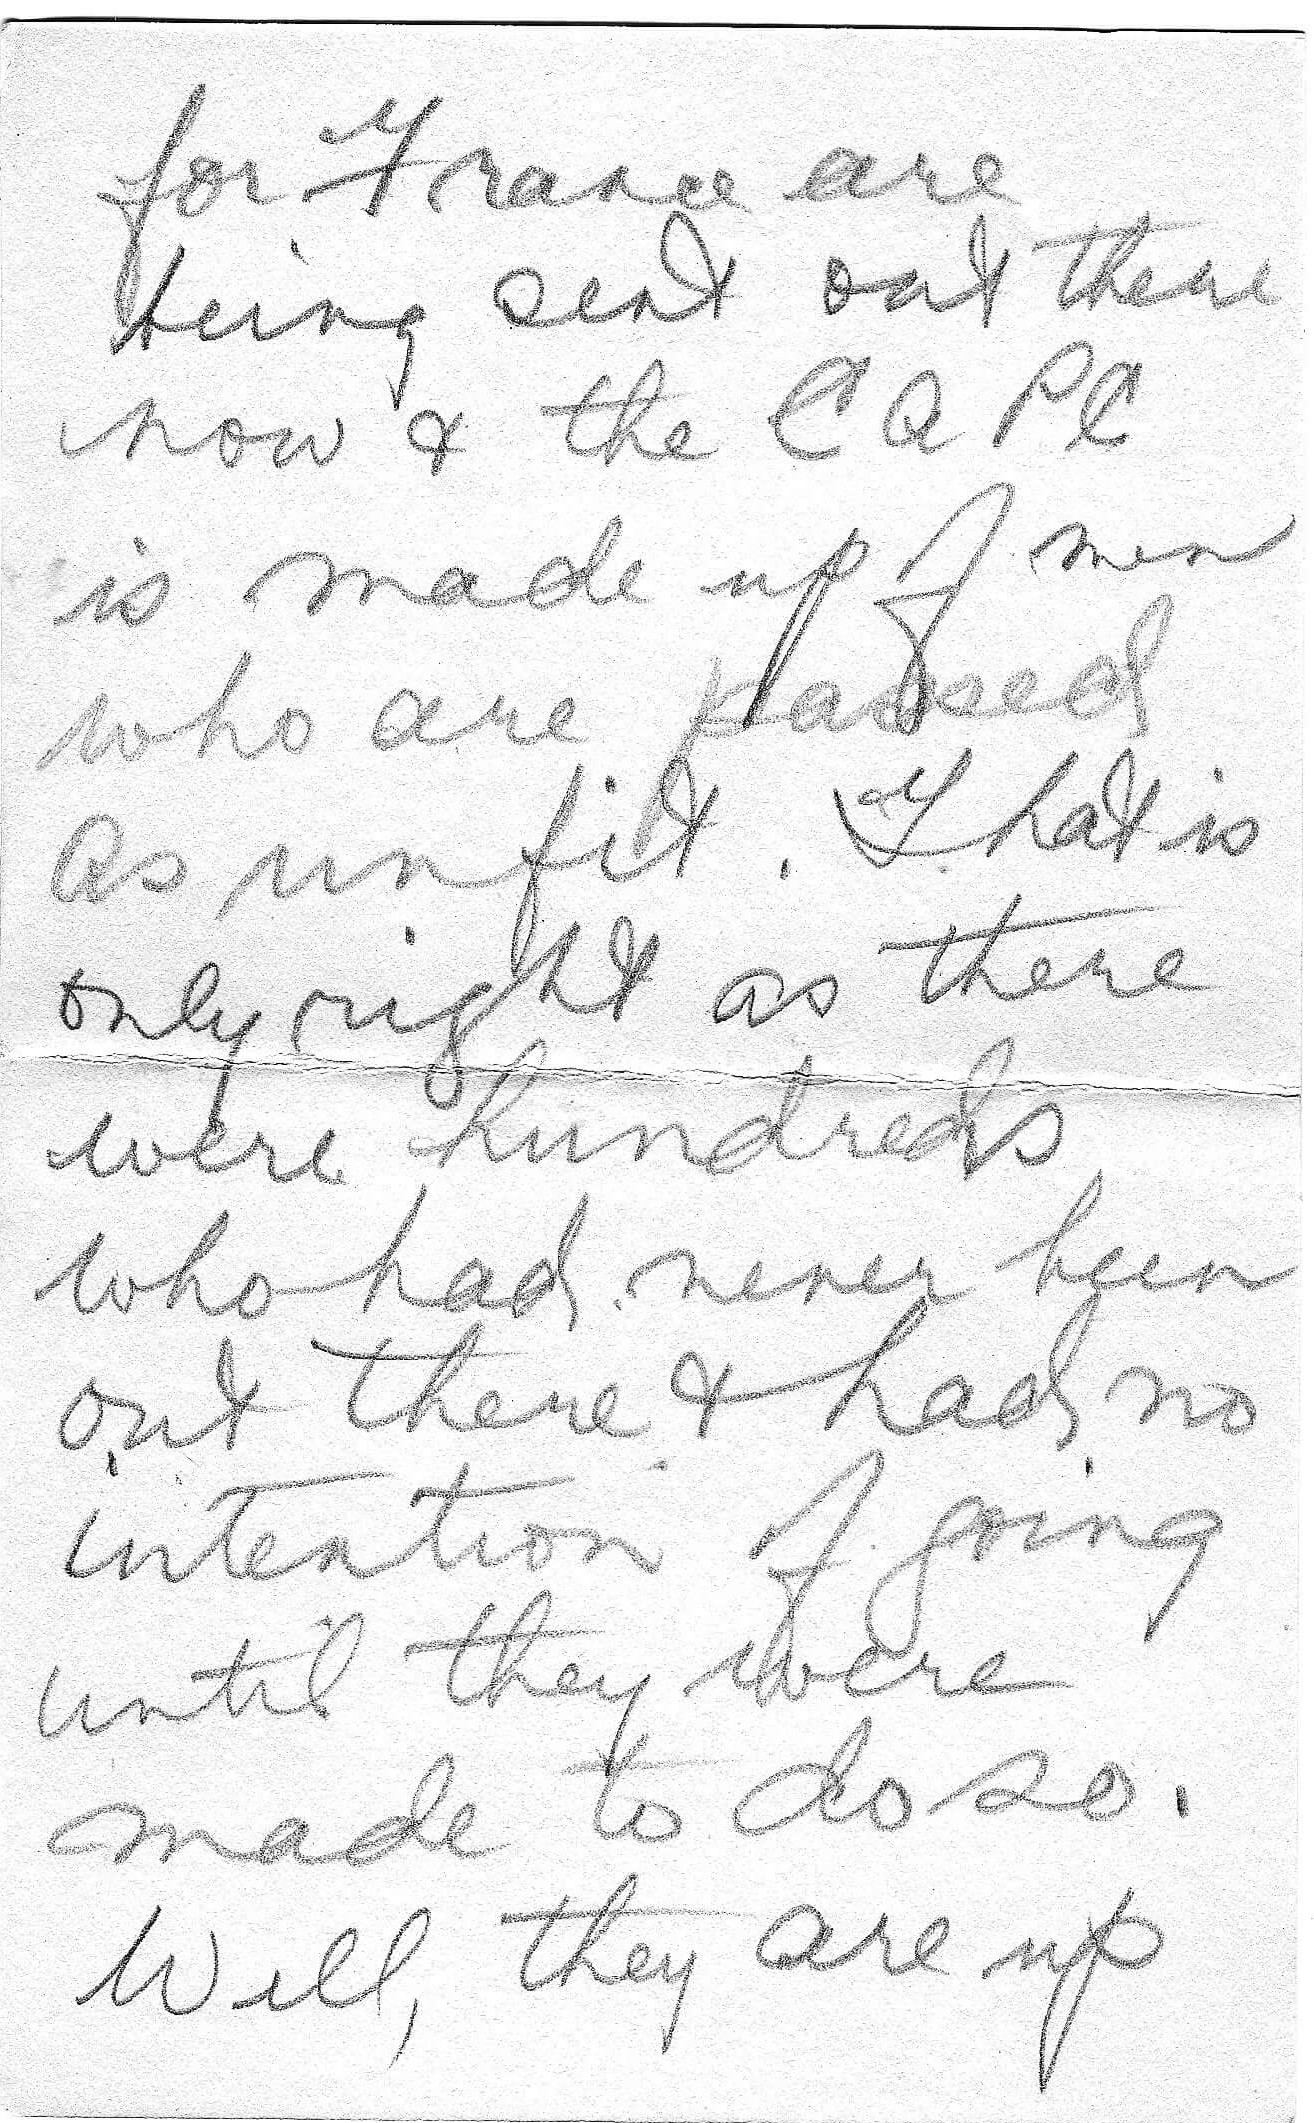 for France are
being sent out there
now & the C A P C
is made up of men
who are passed
as unfit. That is
only right as there
were hundreds
who had never been
out there & had no
intention of going
until they were
made to do so.
Well, they are up